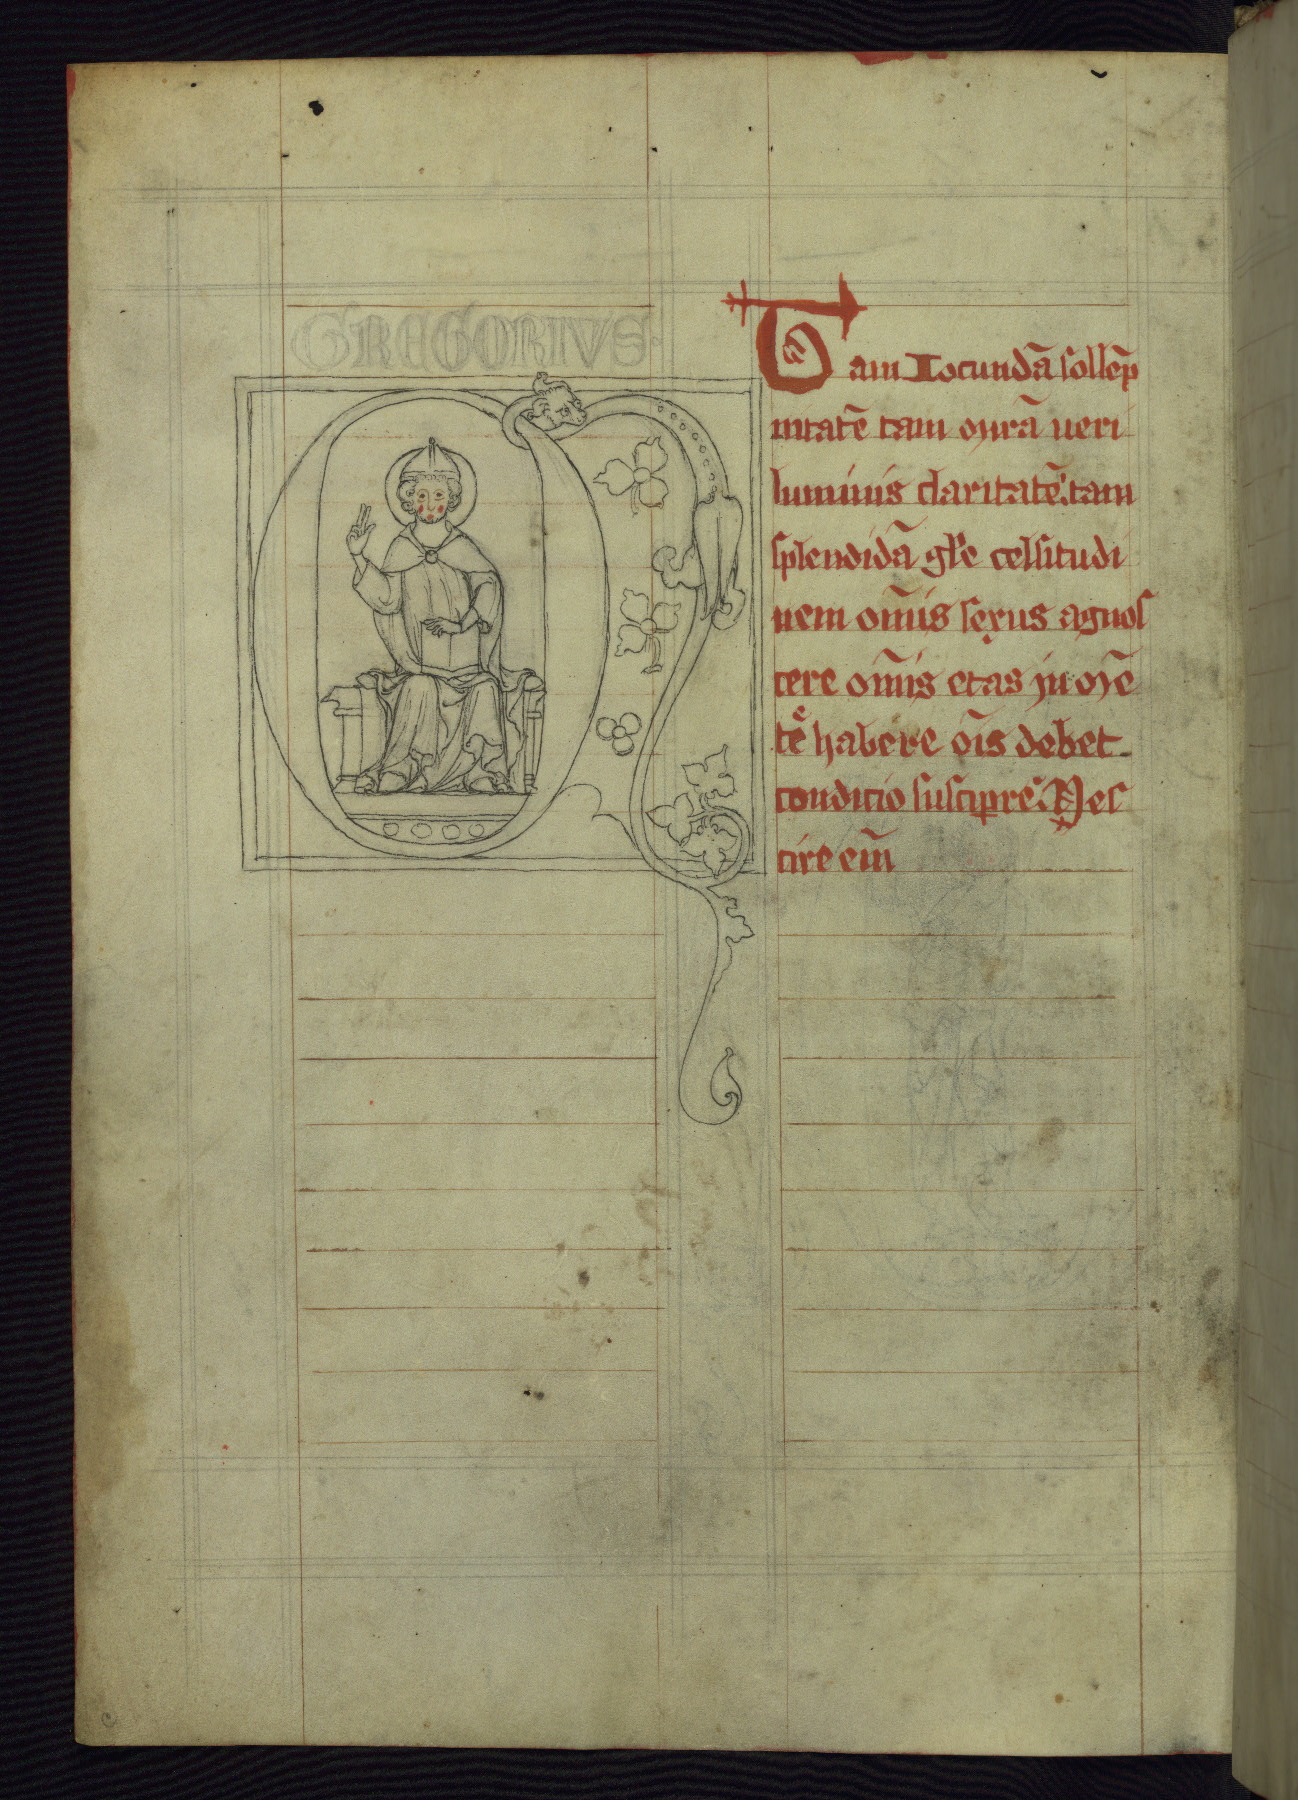 GREGORIVS
Tam Iocundā sollēp
nitatē tam
luminis claritatē. tam
splendidā gle celsitudi
nem om̄is sexus agnos
cere om̄is etas
tē habere ōis debet
conditio suscipre. Nes
cire eni̅